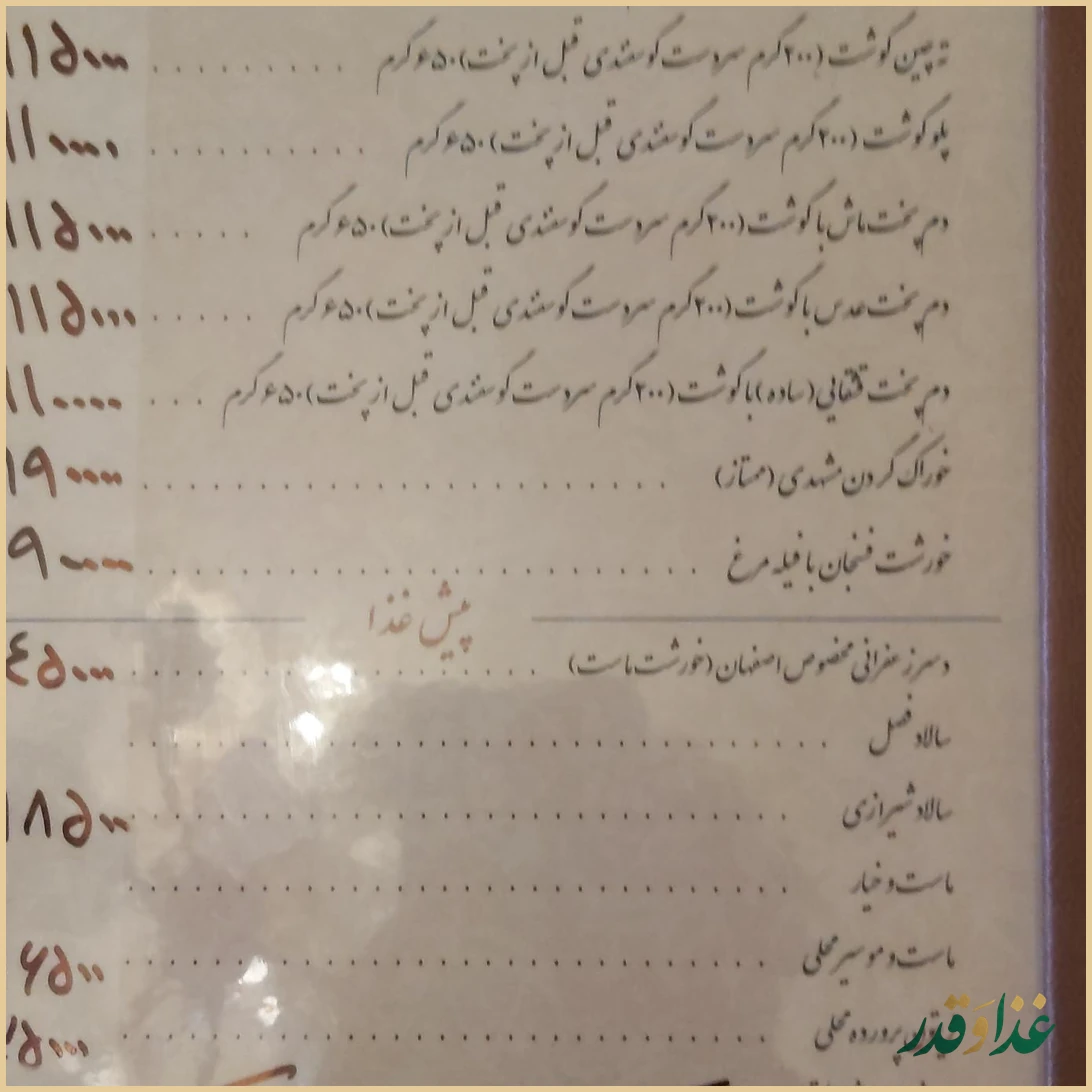 ته چین گوشت (۲۰۰گرم سردست گوسفندی قبل از پخت) ۶۵۰گرم .......... ۱۱۵۰۰۰
پلو گوشت (۲۰۰گرم سردست گوسفندی قبل از پخت) ۶۵۰گرم ........... ۱۱۰۰۰۰
دم پخت ماش با گوشت (۲۰۰گرم سردست گوسفندی قبل از پخت) ۶۵۰گرم ..... ۱۱۵۰۰۰
دم پخت عدس با گوشت (۲۰۰گرم سردست گوسفندی قبل از پخت) ۶۵۰گرم ..... ۱۱۵۰۰۰
دم پخت قشقایی (ساده) با گوشت (۲۰۰گرم سردست گوسفندی قبل از پخت) ۶۵۰گرم ... ۱۱۰۰۰۰
خوراک گردن مشهدی (ممتاز) .......... ۱۹۰۰۰۰
خورشت فسنجان با فیله مرغ .......... ۹۰۰۰۰
پیش غذا
دسر زعفرانی مخصوص اصفهان (خورشت ماست) .......... ۴۵۰۰۰
سالاد فصل ..........
سالاد شیرازی .......... ۱۸۵۰۰
ماست و خیار ..........
ماست و موسیر محلی .......... ۶۵۰۰
پرورده محلی ..........
غذا و قدر